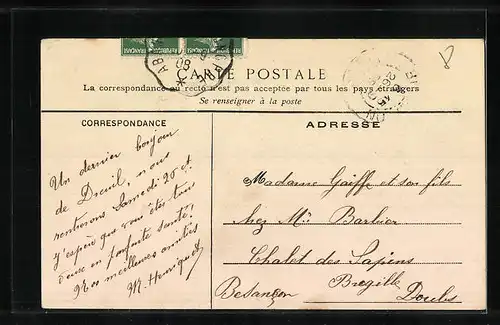 CARTE POSTALE
La correspondance au recto n'est pas acceptée par tous les pays étrangers
Se renseigner à la poste
CORRESPONDANCE
Un dernier bonjour
de Dreuil, nous
rentrerons Samedi 25 et
j'espère que vous êtes tous
deux en parfaite santé,
Nos meilleures amitiés
M. Henriquet
ADRESSE
Madame Gaiffe et son fils
chez Mr Barbier
Chalet des Sapins
Bregille
Besançon
Doubs